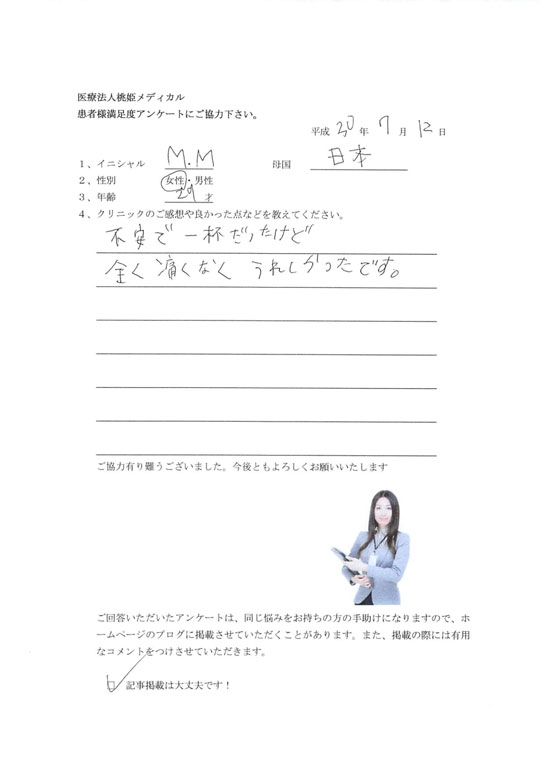 医療法人桃姫メディカル
患者様満足度アンケートにご協力下さい。
平成 30 年 7 月 12 日
1、イニシャル M.M 母国 日本
2、性別 女性・男性
3、年齢 29 才
4、クリニックのご感想や良かった点などを教えてください。
不安で一杯だったけど
全く痛くなく うれしかったです。
ご協力有り難うございました。今後ともよろしくお願いいたします
ご回答いただいたアンケートは、同じ悩みをお持ちの方の手助けになりますので、ホ
ームページのブログに掲載させていただくことがあります。また、掲載の際には有用
なコメントをつけさせていただきます。
☑ 記事掲載は大丈夫です！